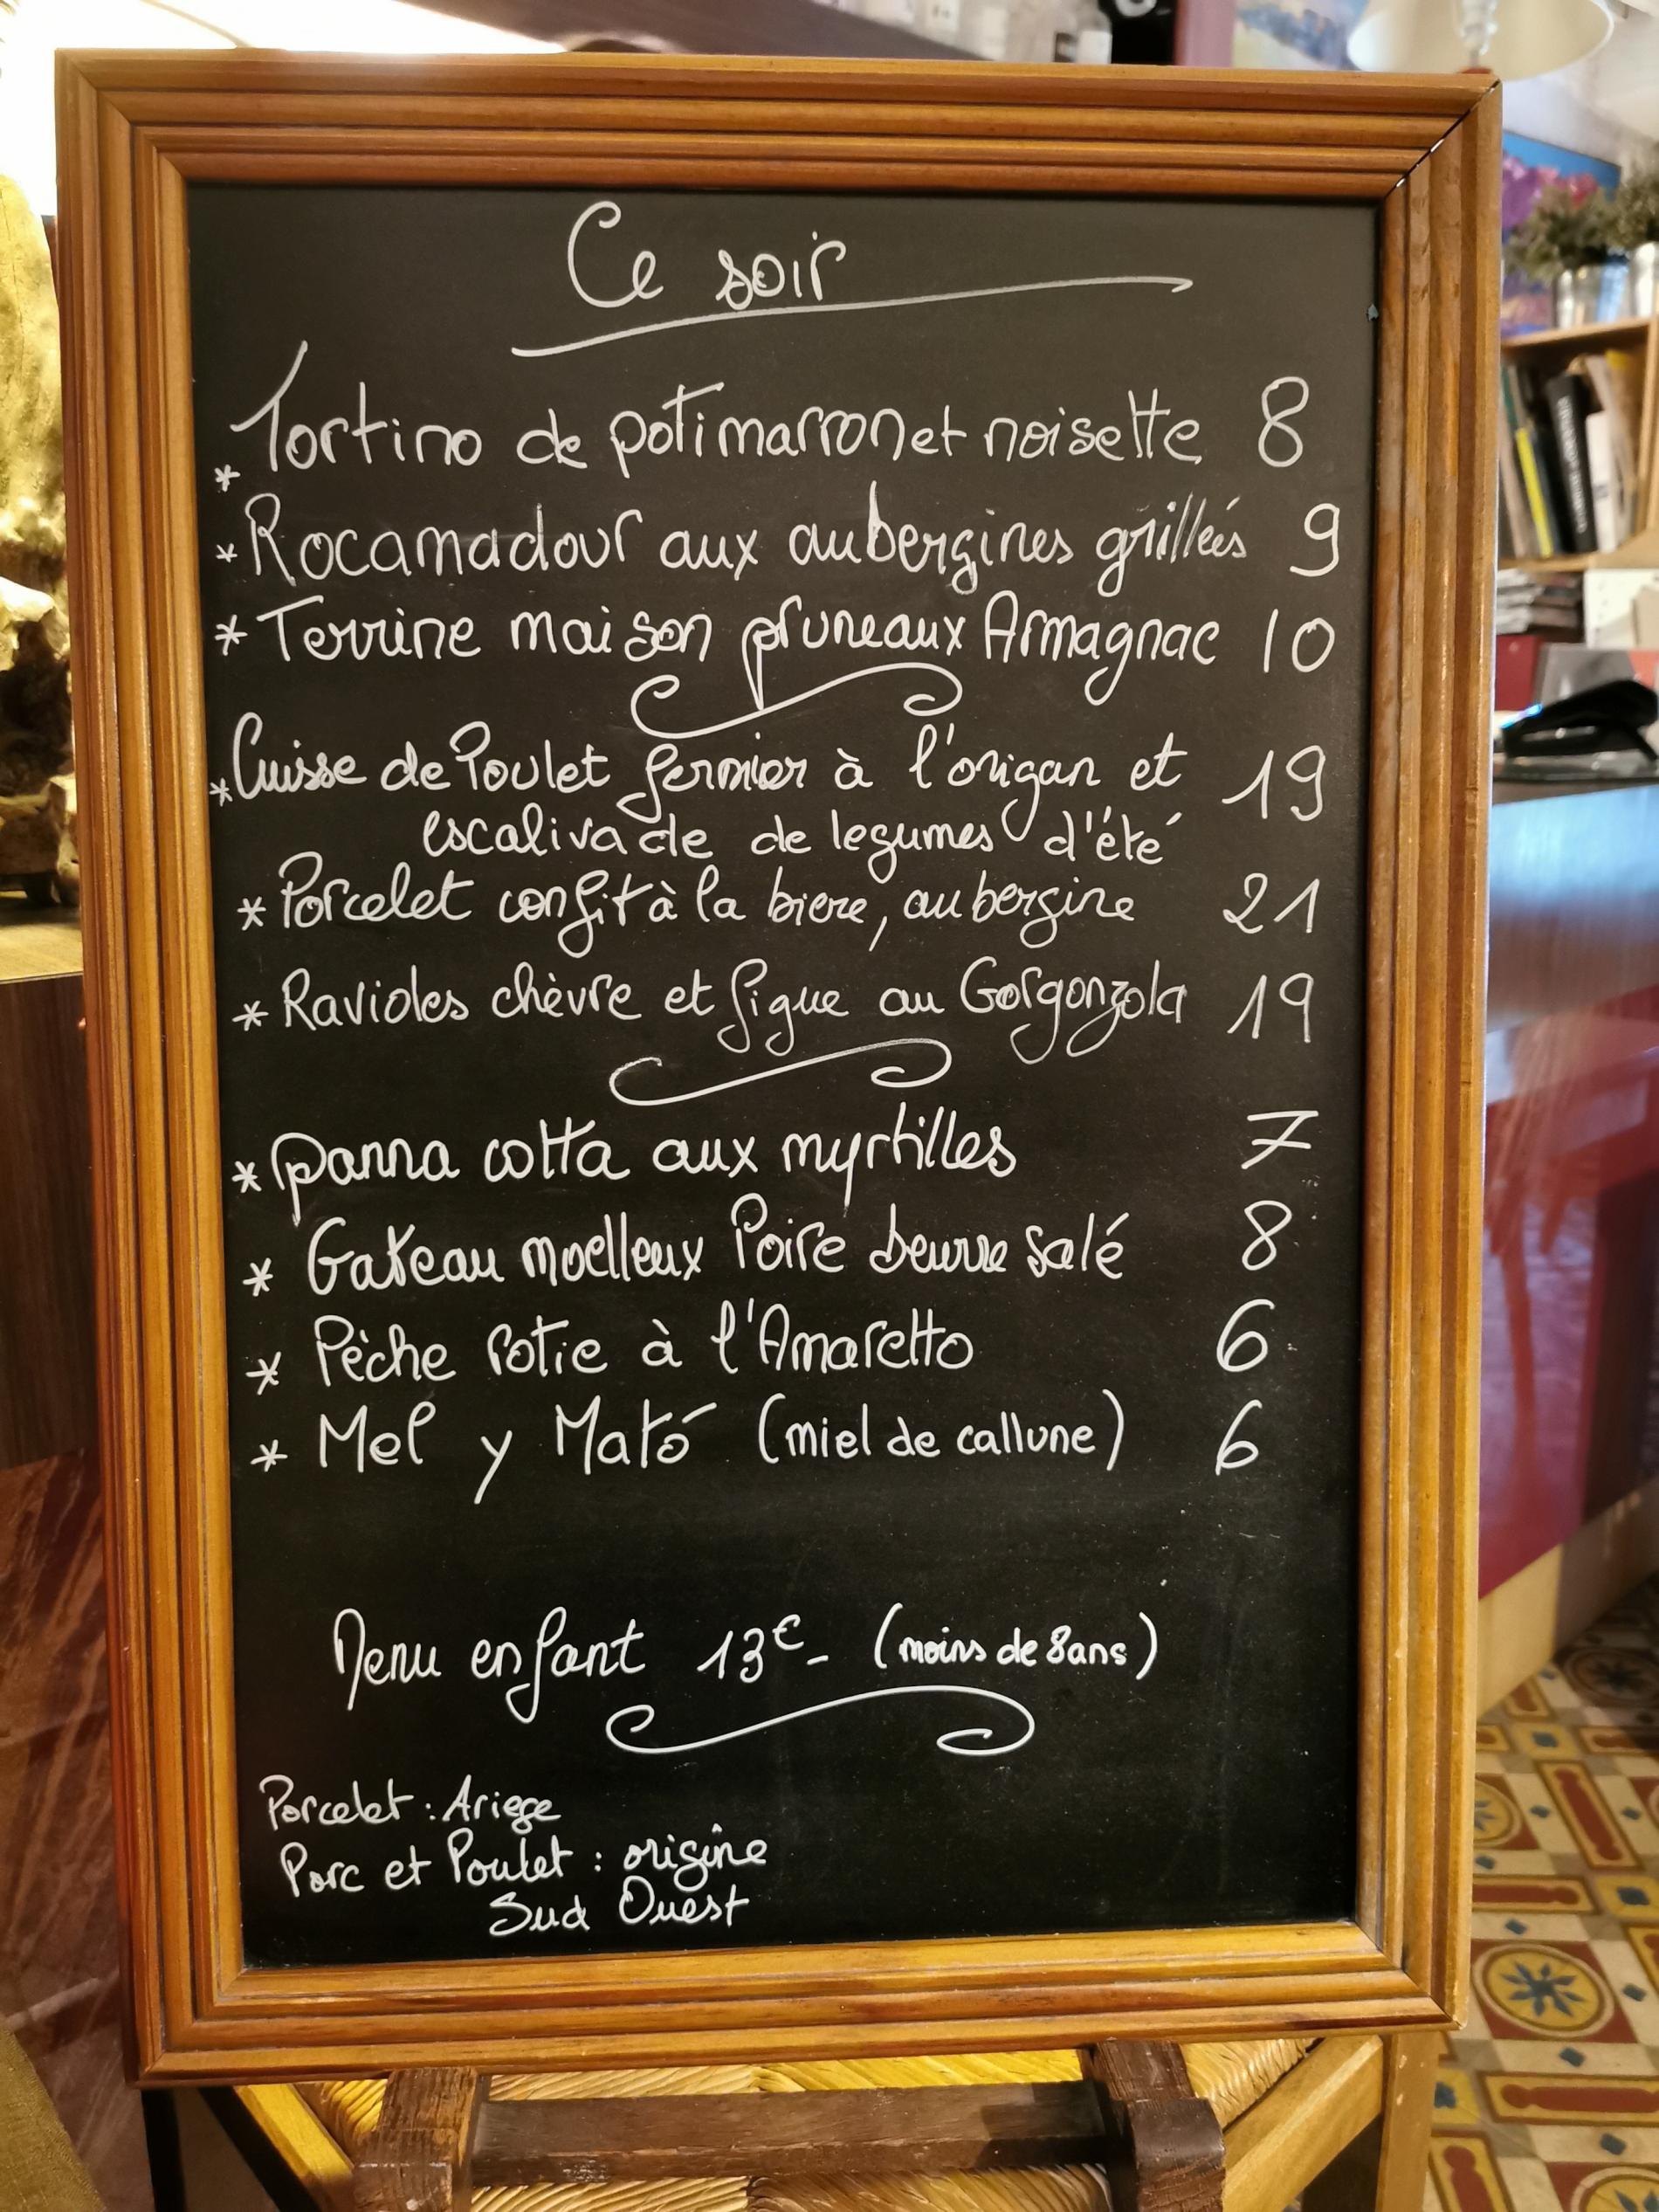 Ce soir
* Tortino de potimarron et noisette 8
* Rocamadour aux aubergines grillées 9
* Terrine maison pruneaux Armagnac 10
* Cuisse de Poulet fermier à l'origan et 19
escalivade de legumes d'été
* Porcelet confit à la biere, aubergine 21
* Ravioles chèvre et figue au Gorgonzola 19
* panna cotta aux myrtilles 7
* Gateau moelleux Poire beurre salé 8
* Pèche rotie à l'Amaretto 6
* Mel y Mató (miel de callune) 6
Menu enfant 13€- (moins de 8ans)
Porcelet : Ariege
Porc et Poulet : origîne
Sud Ouest